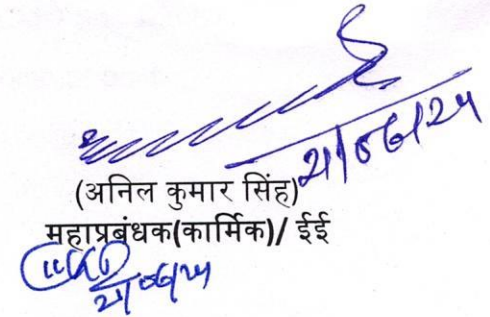 21/06/24
(अनिल कुमार सिंह)
महाप्रबंधक(कार्मिक)/ ईई
21/06/24